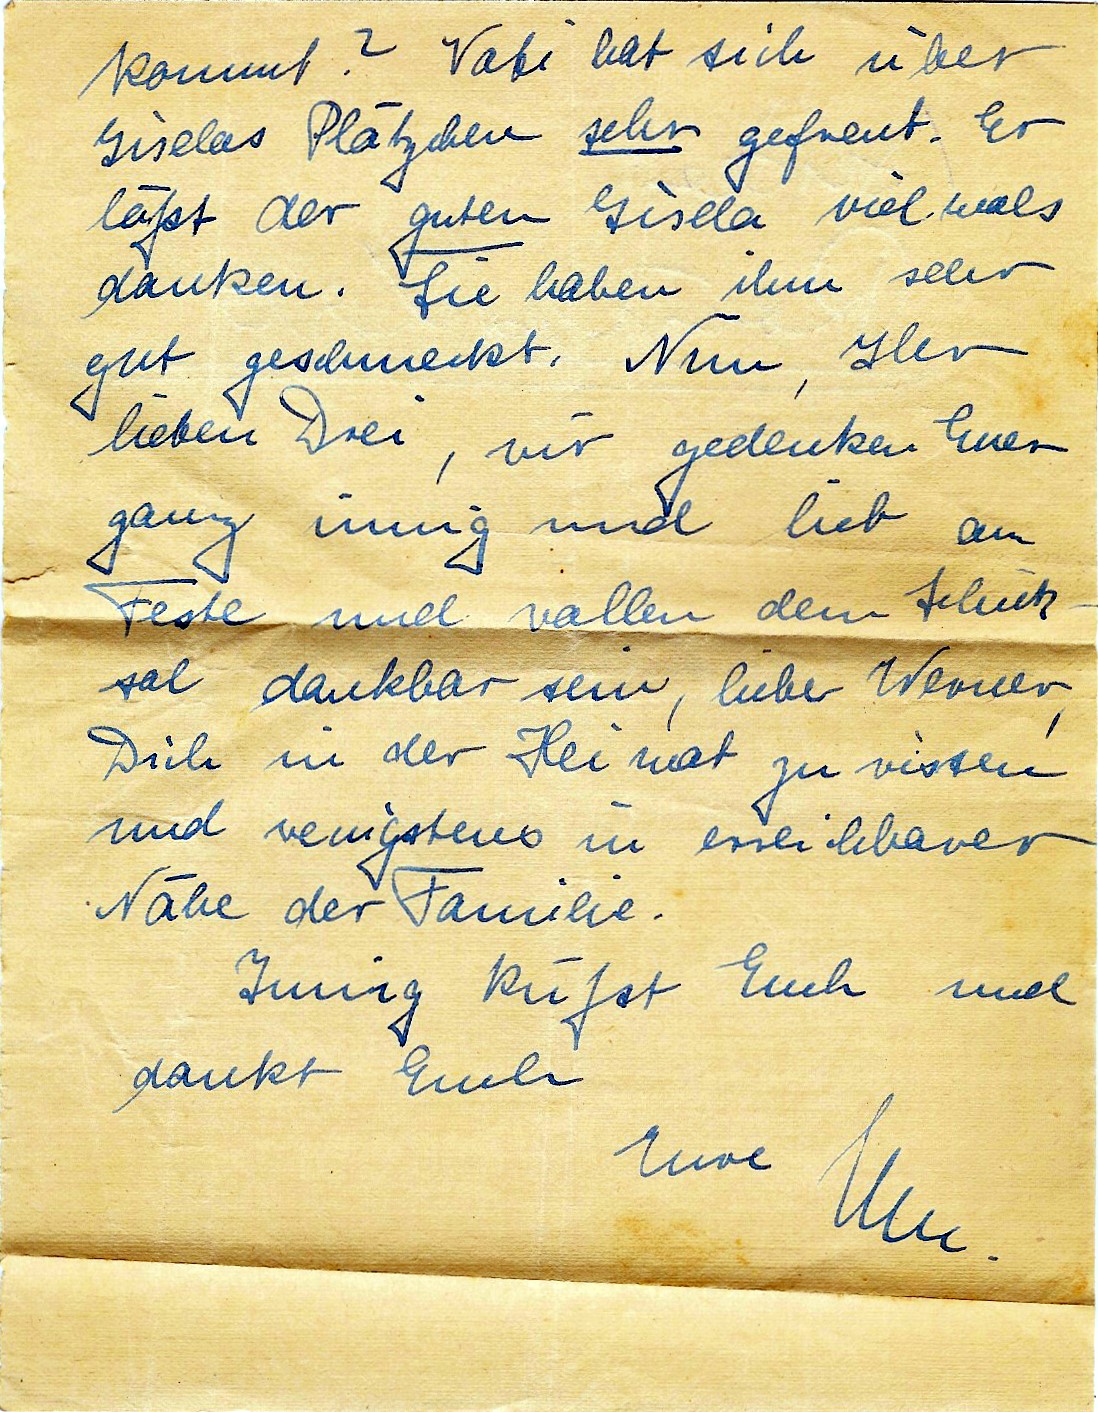 kommt? Vati hat sich über
Giselas Plätzchen sehr gefreut. Er
läßt der guten Gisela vielmals
danken. Sie haben ihm sehr
gut geschmeckt. Nun, Ihr
lieben Drei, wir gedenken Euer
ganz innig und lieb am
Feste und wollen dem Schick-
sal dankbar sein, lieber Werner,
Dich in der Heimat zu wissen
und wenigstens in erreichbarer
Nähe der Familie.
Innig küßt Euch und
dankt Euch
Eure